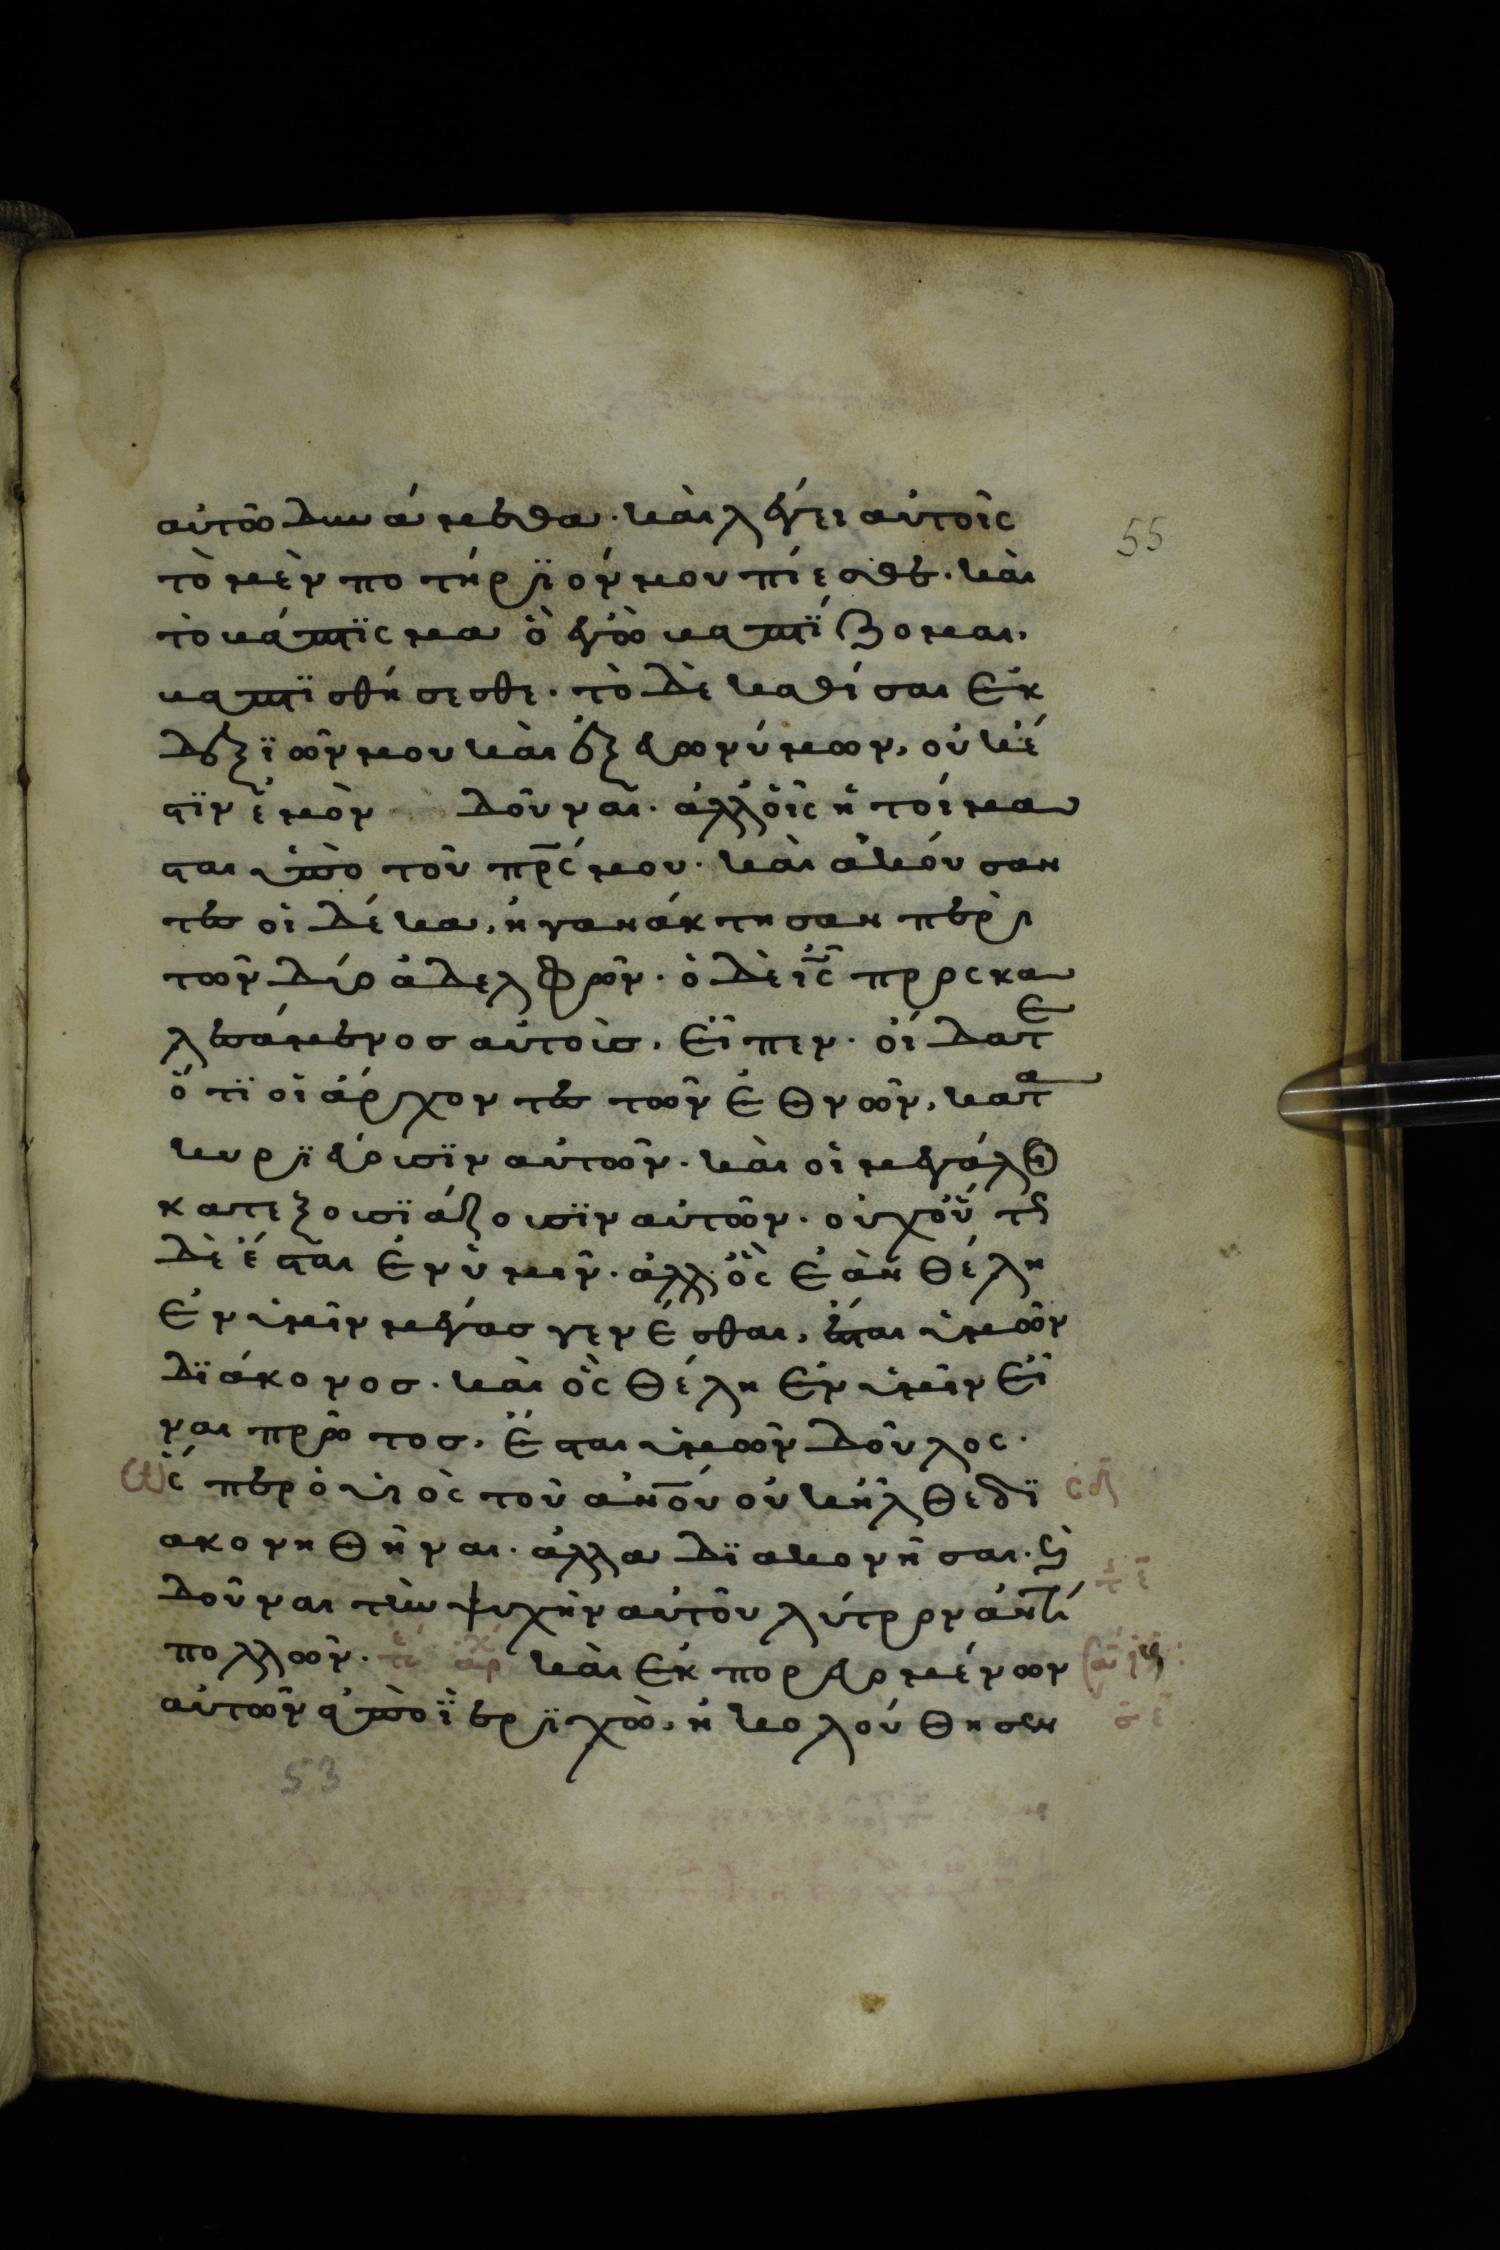 αὐτῶ δυνάμεθα· καὶ λέγει αὐτοῖς
55
τὸ μὲν ποτήριόν μου πίεσθε· καὶ
τὸ βάπτισμα ὃ ἐγὼ βαπτίζομαι,
βαπτισθήσεσθε· τὸ δὲ καθίσαι ἐκ
δεξιῶν μου καὶ ἐξ εὐωνύμων, οὐκ ἔ
στιν ἐμὸν δοῦναι· ἀλλ' οἷς ἡτοίμα
σται ὑπὸ τοῦ πρς μου· καὶ ἀκούσαν
τες οἱ δέκα, ἠγανάκτησαν περὶ
τῶν δύο ἀδελφῶν· ὁ δὲ ις προσκα
λεσάμενος αὐτοὺς, εἶπεν· οἴδατε
ὅτι οἱ ἄρχοντες τῶν ἐθνῶν, κατα
κυριεύουσιν αὐτῶν· καὶ οἱ μεγάλοι
κατεξουσιάζουσιν αὐτῶν· οὐχ οὕτως
δὲ ἔσται ἐν ὑμῖν· ἀλλ' ὃς ἐὰν θέλη
ἐν ὑμῖν μέγας γενέσθαι, ἔσται ὑμῶν
διάκονος· καὶ ὃς θέλη ἐν ὑμῖν εἶ
ναι πρῶτος, ἔσται ὑμῶν δοῦλος·
ὥσπερ ὁ υἱὸς τοῦ ανου οὐκ ἦλθε δι
ακονηθῆναι· ἀλλὰ διακονῆσαι· καὶ
δοῦναι τὴν ψυχὴν αὐτοῦ λύτρον ἀντὶ
πολλῶν· τε αρχ καὶ ἐκπορευομένων
αὐτῶν ἀπὸ ἱεριχὼ, ἠκολούθησεν
53